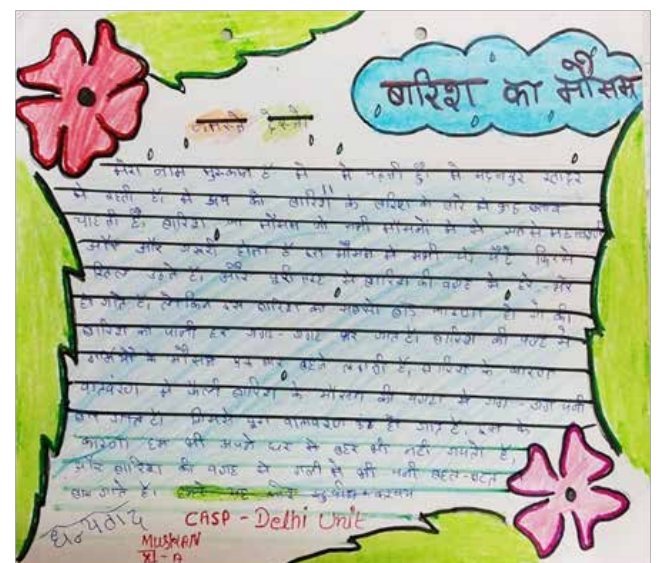 बारिश का मौसम
नमस्ते दोस्तो
मेरा नाम मुस्कान है मै 11 मे पढ़ती हूँ। मै मदनपुर खादर
मे रहती हूँ। मै आप को बारिश के बारिश के बारे मे कुछ
चाहती हूँ, बारिश का मौसम जो सभी मौसमो मे से सबसे
और और जरूरी होता है इस मौसम मे सभी पेड़ पौधे फिरसे
खिल उठते है। और पूरी तरह से बारिश की वजह से हरे-भरे
हो जाते है, लेकिन इस बारिश का सबसे की
बारिश का पानी हर जगह-जगह भर जाता है। बारिश की वजह से
गर्मियो के मौसम लगती है, बारिश के कारण
वातावरण मे बारिश के मौसम की वजह से जगह-जगह पनी
भर जाता है। जिससे पूरा वातावरण ठंडा हो जाता है, इस के
कारण हम भी अपने घर से बहर भी नही जाते है,
और बारिश की वजह से गली मे भी पनी बहुत-बहुत
भर जाते है।
धन्यवाद CASP - Delhi Unit
MUSKAN
XI - A